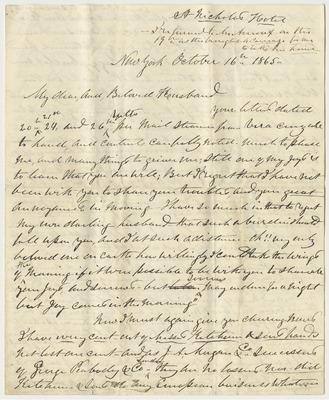 St Nicholas Hotel
New York October 16th 1865
My dear and Beloved Housband
Your letters dated
20th 21st 24, and 26th Ulto per Mail Steamer from Vera cruz ate
to hand, and content carefully noted. Much to please
me and many things to grieve me, still one of my Joys is
to learn that you are well, But I regret that I have not
been with you to share your troubles and your great
annoyance in moving I have so much in that to regret
My own darling housband that such a burden should
fall upon you, and I at such a distance. Oh!! my only
beloved one on earth how willingly I would take the wings
of Morning if it were possible to be with you to share
your Joys and sorrows but may endure for a night
but Joy comes in the morning
Now I must again give you cheering news
I have every cent out of Ketchum & Sons hands
not lost one cent and as J. S. Morgan & Co Successors
of George Peabody & Co London they are no losers Nor did
Ketchum & Sons do any European business whatever